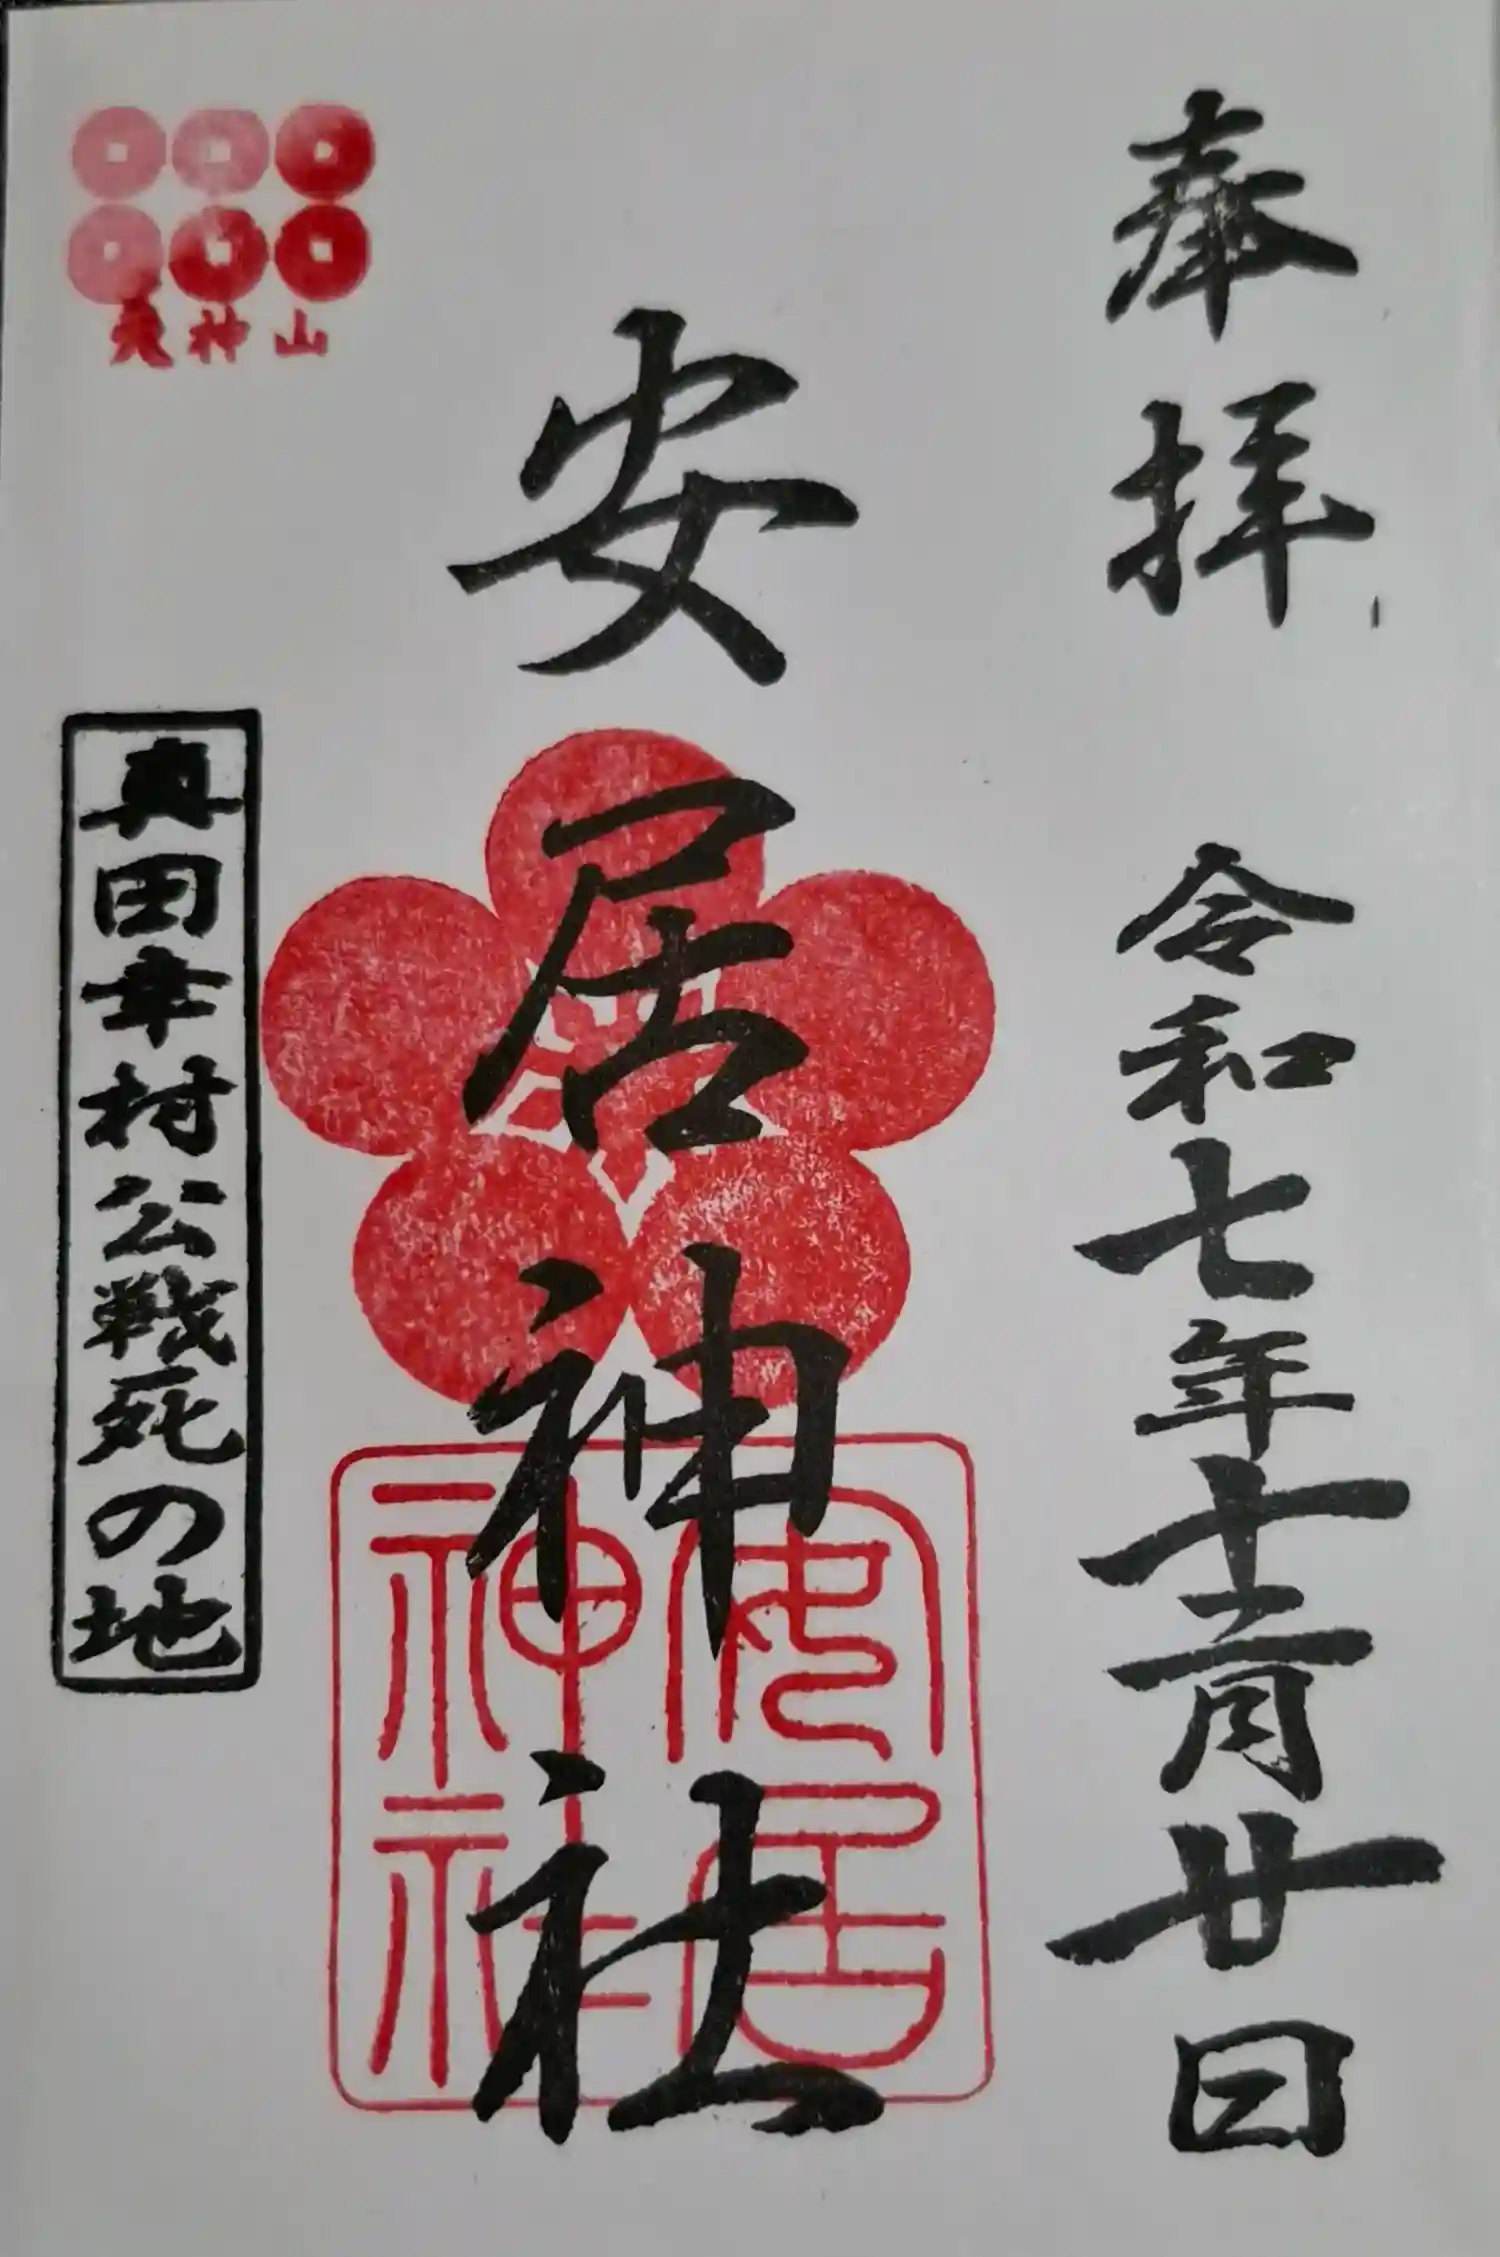 奉拝
令和七年十二月廿日
安居神社
安居
神社
天神山
真田幸村公戦死の地